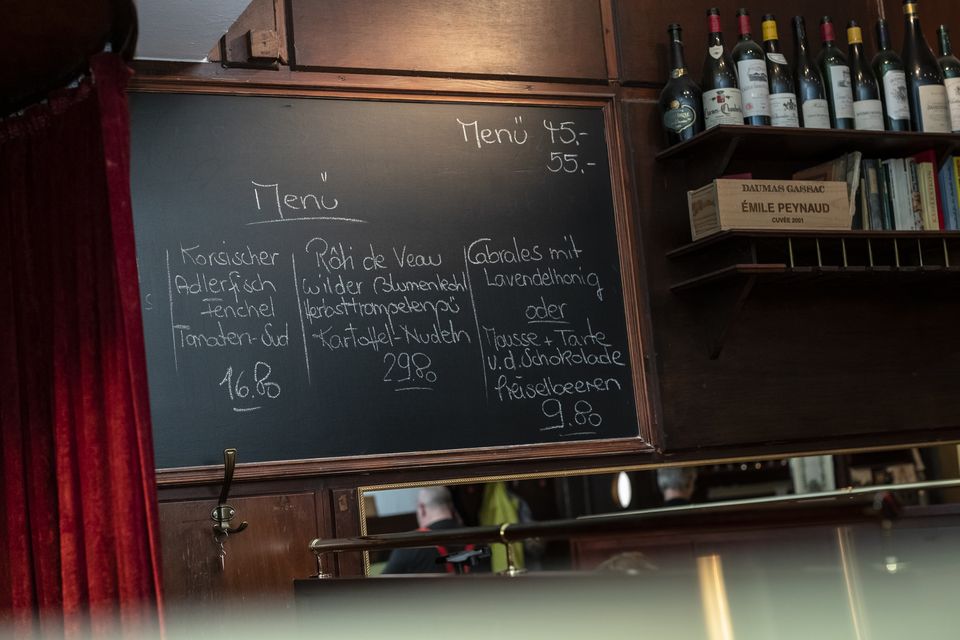 Menü 45,-
55.-
Menü
Korsischer
Adlerfisch
Fenchel
Tomaten-Sud
16.80
Rôti de Veau
wilder Blumenkohl
Herbsttrompetenpü
-Kartoffel-Nudeln
29.80
Cabrales mit
Lavendelhonig
oder
Mousse + Tarte
v.d. Schokolade
Preiselbeeren
9.80
DAUMAS GASSAC
ÉMILE PEYNAUD
CUVÉE 2001